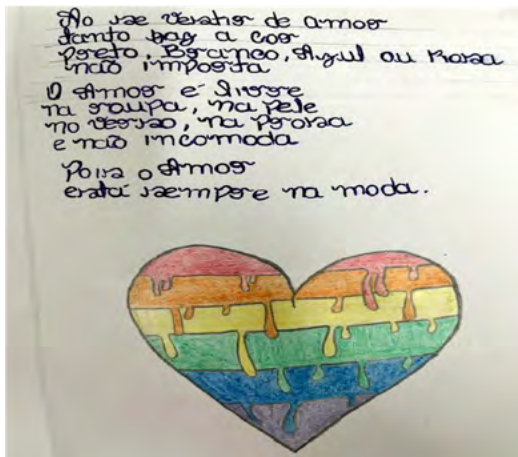 Ao se vestir de amor
tanto faz a cor
preto, Branco, Azul ou Rosa
não importa
O Amor é livre
na roupa, na pele
no verso, na prosa
e não incomoda
Pois o Amor
está sempre na moda.